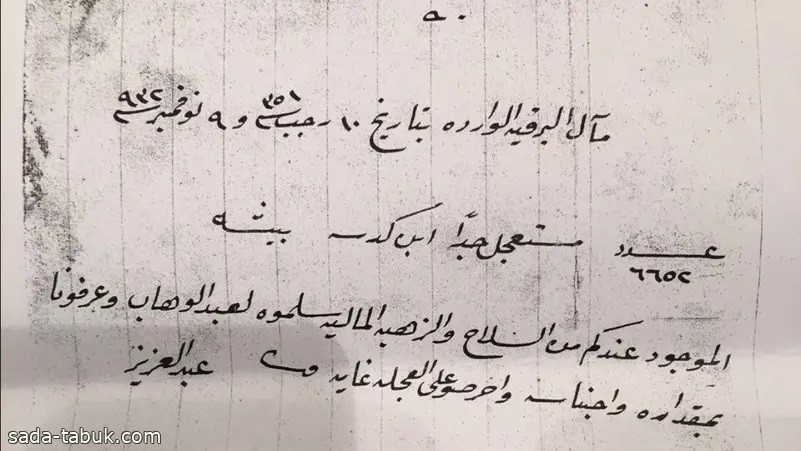 مآل البرقيه الوارده بتاريخ ١٠ رجب سنة ٣٥١ و ٩ نوفمبر سنة ٩٣٢
عدد ٦٦٥٢ مستعجل جداً ابن كدسه بيشه
الموجود عندكم من السلاح والزهبه الماليه سلموه لعبدالوهاب وعرفونا
بمقداره واجناسه واحرصوا على العجله غايه عبدالعزيز
sada-tabuk.com